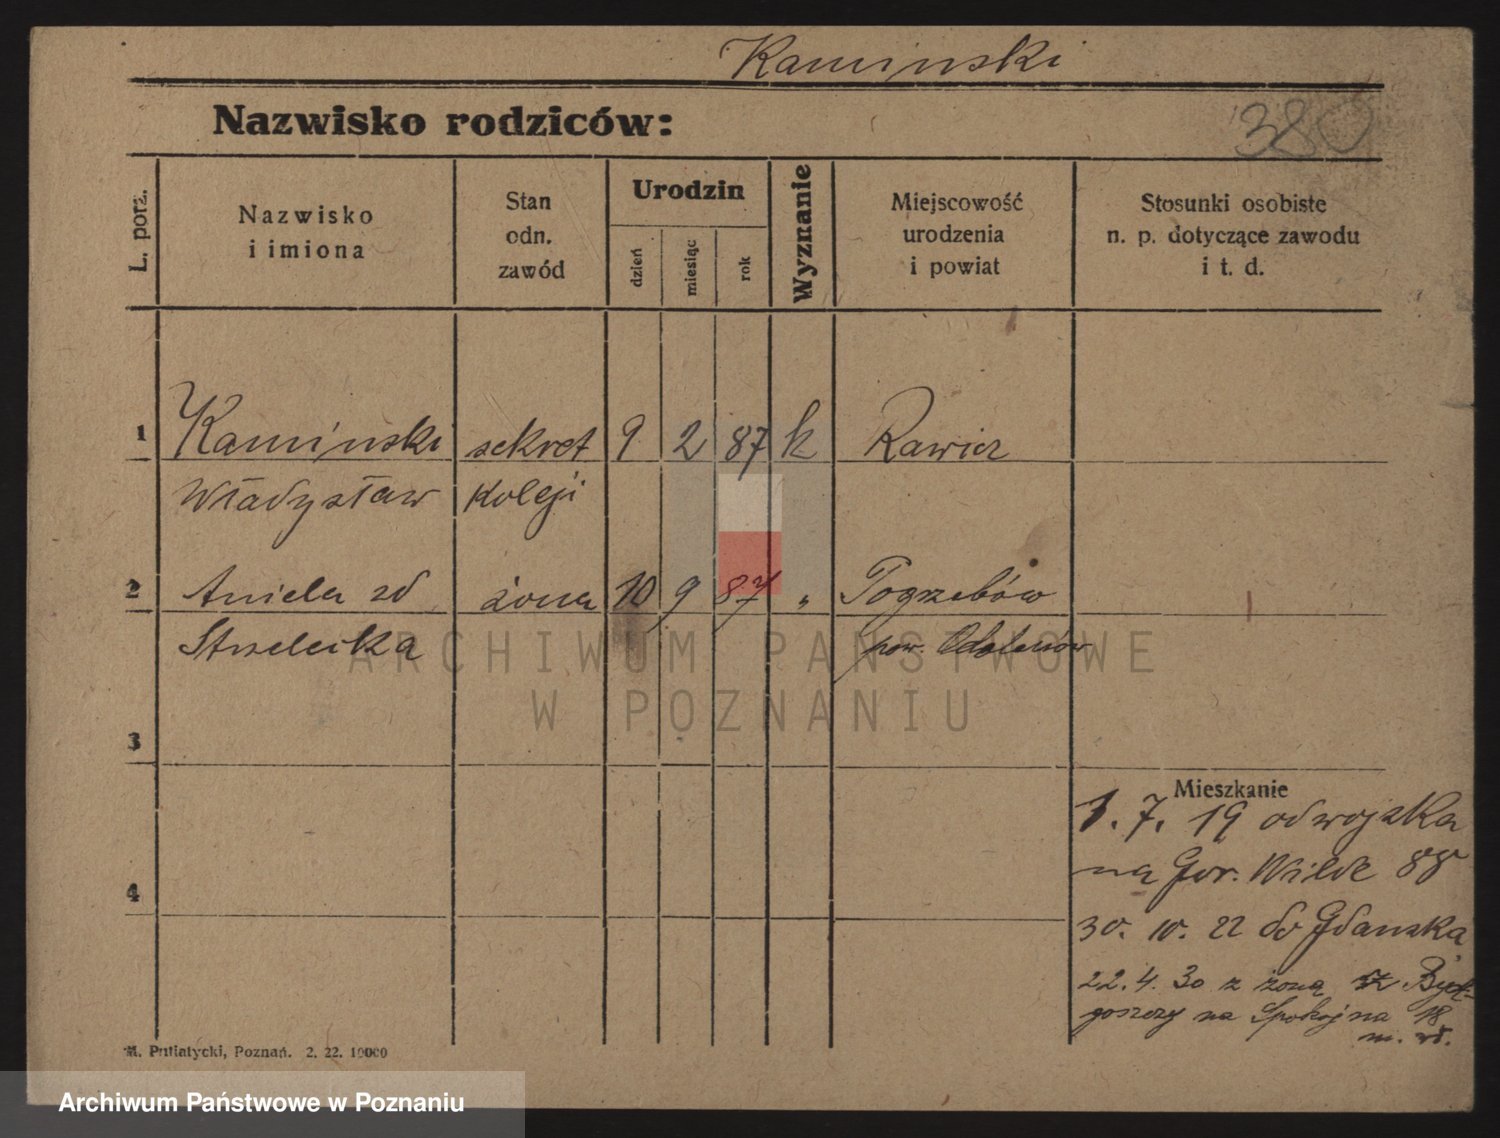 Kaminski
Nazwisko rodziców:
380
L. porz.
Nazwisko
i imiona
Stan
odn.
zawód
Urodzin
dzień
miesiąc
rok
Wyznanie
Miejscowość
urodzenia
i powiat
Stosunki osobiste
n. p. dotyczące zawodu
i t. d.
1 Kamiński sekret 9 2 87 k Rawicz
Władysław Koleji
2 Aniela zd żona 10 9 87 " Pogrzebów
Strzelecka pow. Odolanów
ARCHIWUM PAŃSTWOWE
W POZNANIU
3
Mieszkanie
1. 7. 19 od wojska
na Gór. Wilde 88
4
30. 10. 22 do Gdańska
22. 4. 30 z żoną z Byd-
goszczy na Spokojna 18
m.
M. Putiatycki, Poznań. 2. 22. 10000
Archiwum Państwowe w Poznaniu